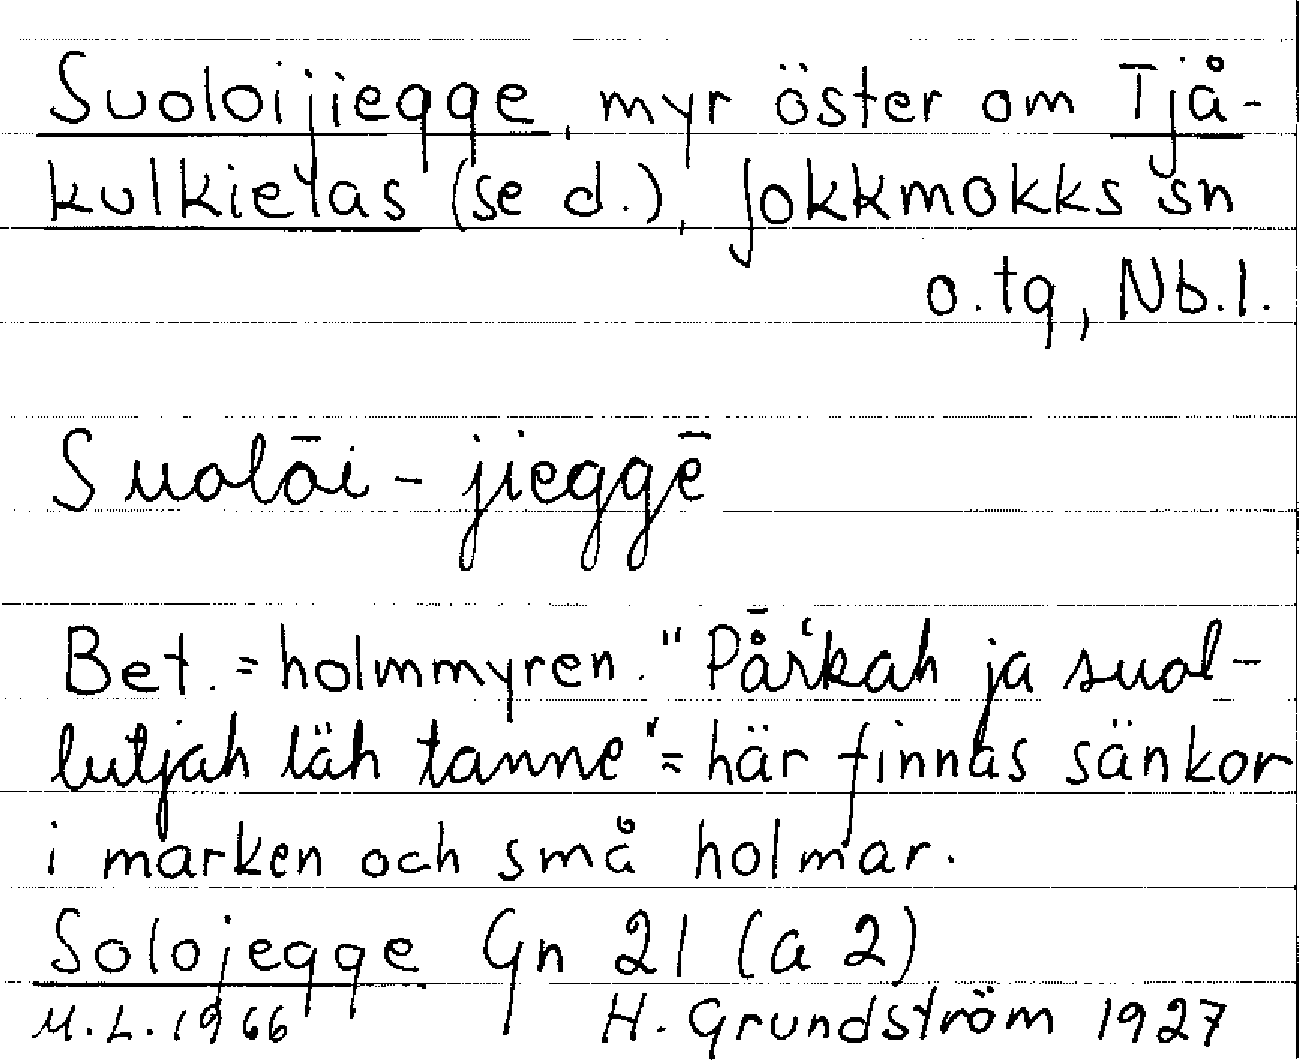 Suoloijiegge, myr öster om Tjå-
kulkielas (se d.), Jokkmokks sn
o. tg, Nb. l.
Suolōi - jieggē
Bet. = holmmyren. "Pā̊rʻkah ja suol-
lutjah läh tanne" = här finnas sänkor
i marken och små holmar.
Solojegge Gn 21 (a 2)
M. L. 1966 H. Grundström 1927